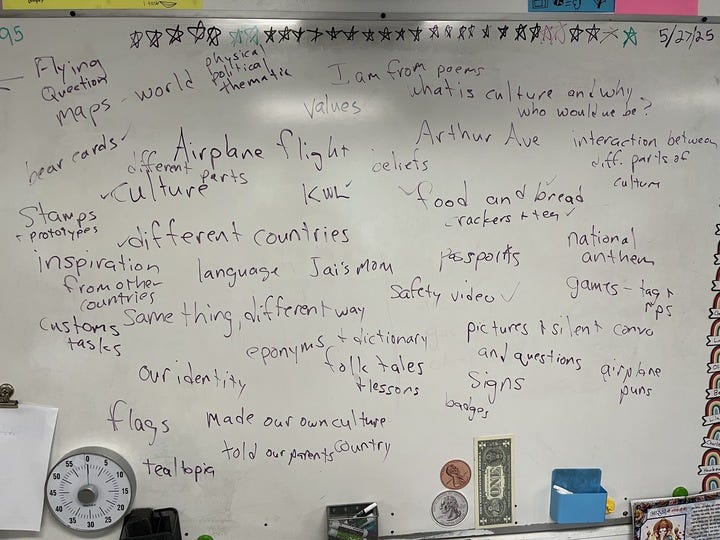 95
5/27/25
Flying
Question
maps - world
physical
political
thematic
I am from poems
what is culture and why
who would we be?
values
bear cards ✓
Airplane flight
different parts
✓culture
KWL
beliefs
Arthur Ave
interaction between
diff. parts of
culture
✓food and bread
crackers + tea ✓
Stamps
+ prototypes
✓different countries
inspiration
from other
countries
language
Jai's mom
passports
national
anthem
Safety video ✓
games - tag +
rps
customs
tasks
Same thing, different way
eponyms + dictionary
folk tales
+ lessons
pictures + silent convo
and questions
airplane
puns
our identity
Signs
badges
flags
made our own culture
country
told our parents
tealtopia
55
0
5
50
10
45
15
40
20
35
30
25
ONE